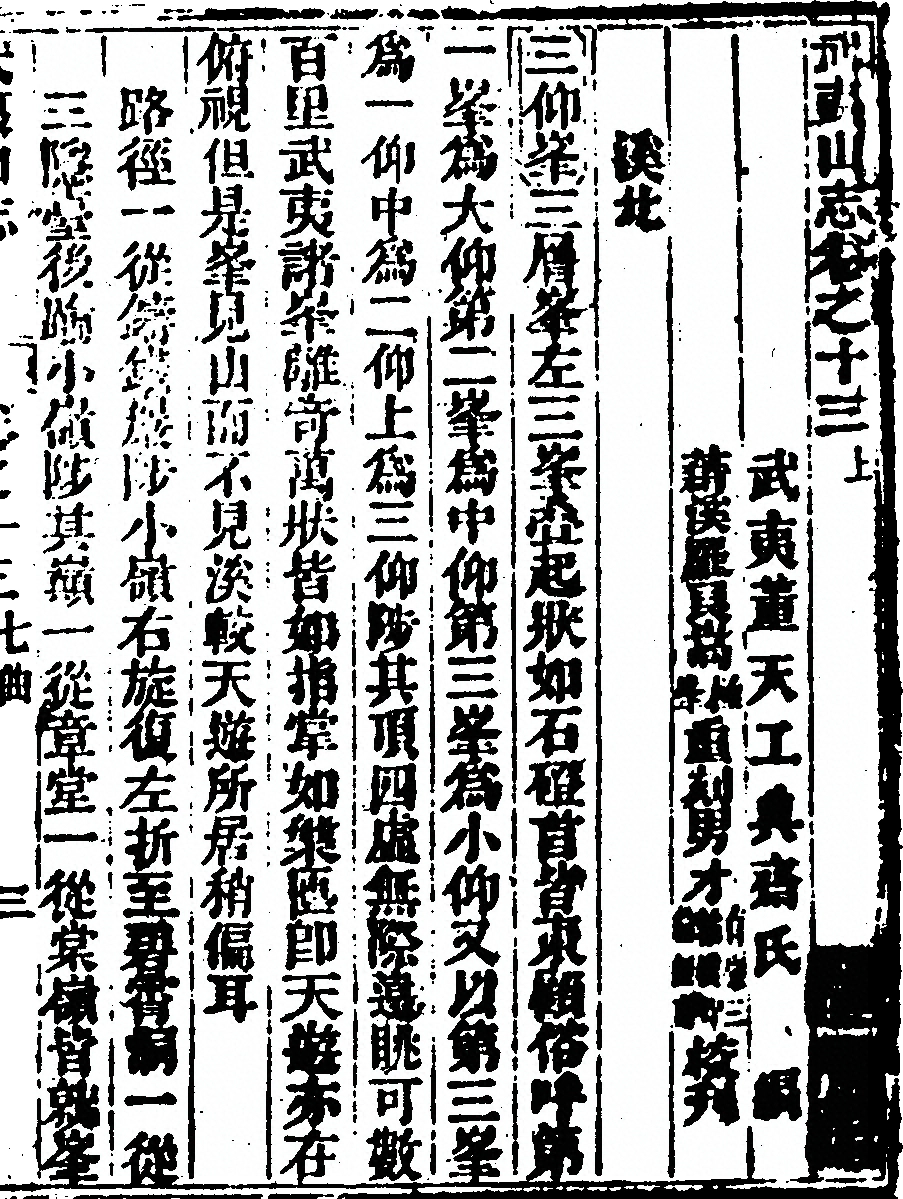 武彝山志卷之十三上
武夷董天工典齋氏 編
重刻男才 校刋
溪北
三仰峯三層峯左三峯壺起狀如石磴首皆東顧俗呼第
一峯為大仰第二峯為中仰第三峯為小仰又以第三峯
為一仰中為二仰上為三仰陟其頂四虛無際遠眺可數
百里武夷諸峯離奇萬狀皆如指掌如樂匏即天遊亦在
俯視但是峯見山而不見溪較天遊所居稍偏耳
路徑一從 陟小嶺右旋復左折至碧霄洞一從
三隱堂後踰小嶺陟其巔一從章堂一從棠嶺皆就峯
之十三七曲 三